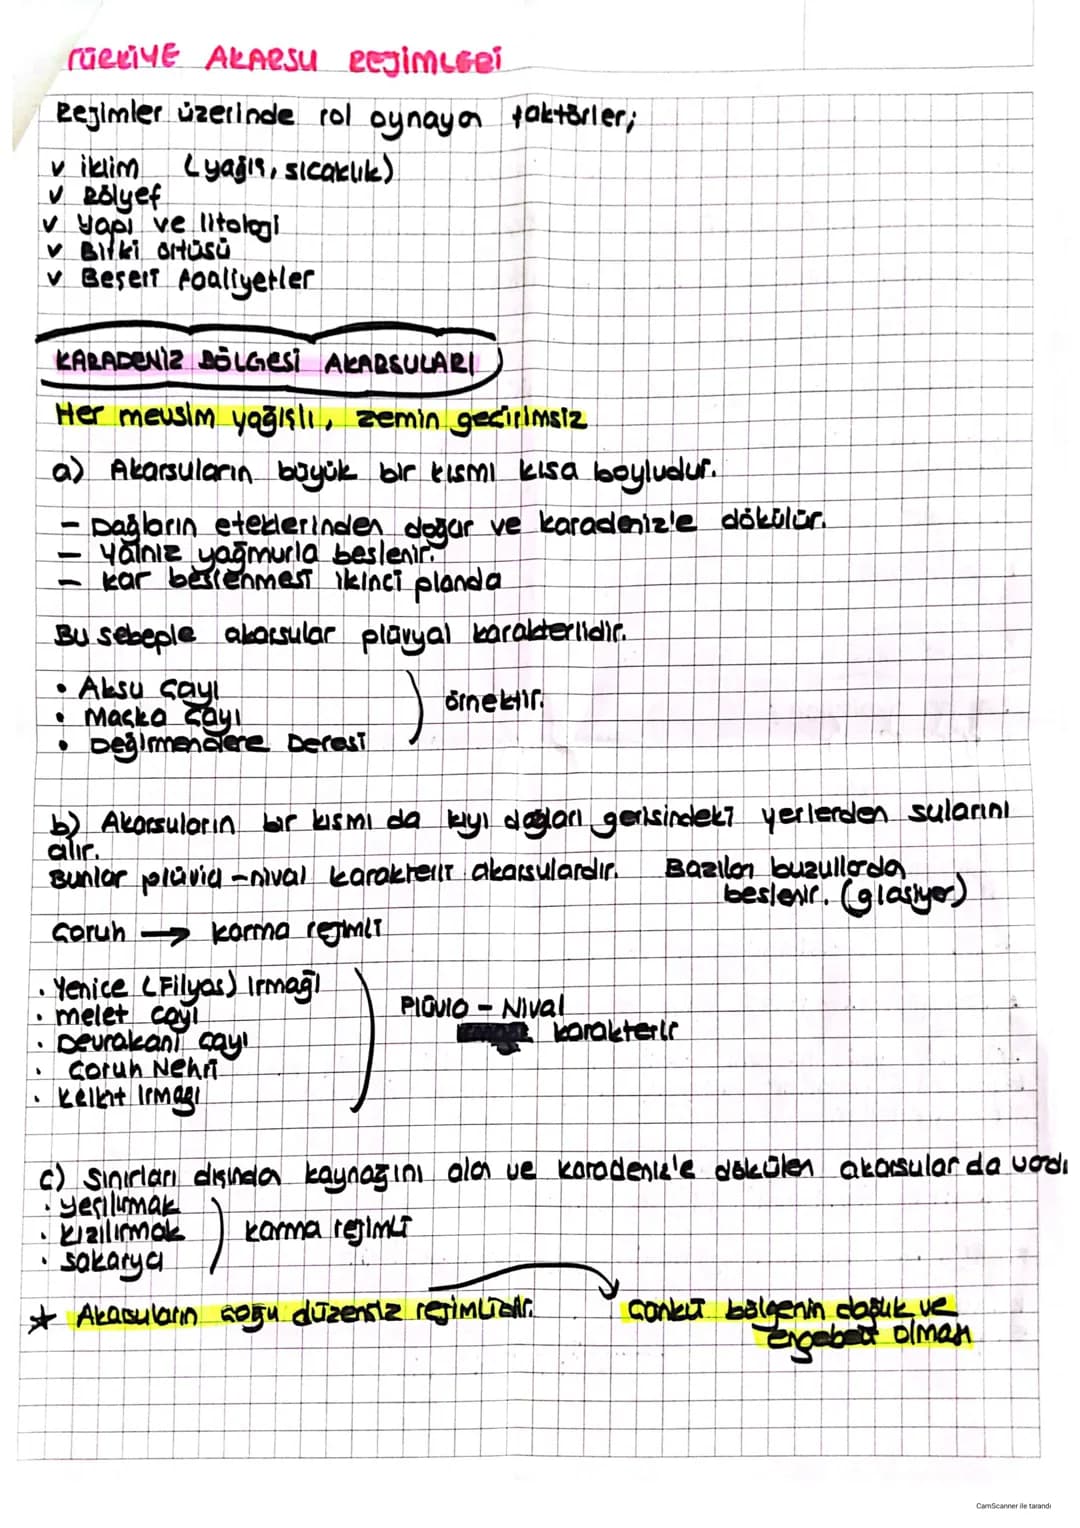 TÜRKİYE AKARSU REJİMLERİ
Rejimler üzerinde rol oynayan faktörler;
v iklim (yağış, sıcaklık)
v Rölyef
v Yapı ve litoloji
v Bitki örtüsü
v Beşeri faaliyetler
KARADENİZ BÖLGESİ AKARSULARI
Her mevsim yağışlı, zemin geçirimsiz
a) Akarsuların büyük bir kısmı kısa boyludur.
- Dağların eteklerinden doğar ve karadeniz'e dökülür.
- yalnız yağmurla beslenir.
- kar beslenmesi ikinci planda
Bu sebeple akarsular plüvyal karakterlidir.
• Aksu Çayı
• Maçka Çayı
• Değirmendere Deresi
örnektir.
b) Akarsuların bir kısmı da kıyı dağları gerisindeki yerlerden sularını
alır.
Bunlar plüvio-nival karakterli akarsulardır. Bazıları buzullardan
beslenir. (glasiyer)
Çoruh → karma rejimli
• Yenice (Filyos) Irmağı
• melet çayı
• Devrakani çayı
• Çoruh Nehri
• Kelkit Irmağı
Plüvio - Nival
karakterli
c) Sınırları dışından kaynağını alan ve karadeniz'e dökülen akarsular da vardı
• yeşilırmak
• kızılırmak
• sakarya
karma rejimli
★ Akarsuların çoğu düzensiz rejimlidir.
Çünkü bölgenin dağlık ve
engebeli olması
CamScanner ile tarandı